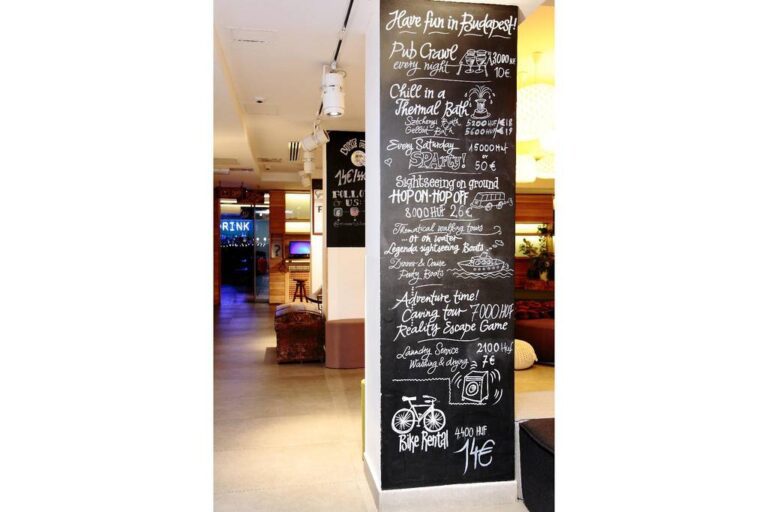 DRINK
14€/4
FOLLO
US:
Have fun in Budapest!
Pub Crawl
every night
3000 HUF
10€
Chill in a
Thermal Bath
Széchenyi Bath 5200 HUF/€18
Gellért Bath 5600 HUF/€19
Every Saturday 15000 HUF
SPArty! or
50€
Sightseeing on ground
HOP ON-HOP OFF
8000 HUF 26€
Thematical walking tours
... or on water
Legenda sightseeing Boats
Dinner & Cruise
Party Boats
Adventure time!
Caving tour 7000 HUF
Reality Escape Game
Laundry Service 2100 HUF
Washing & drying 7€
Bike Rental
4400 HUF
14€